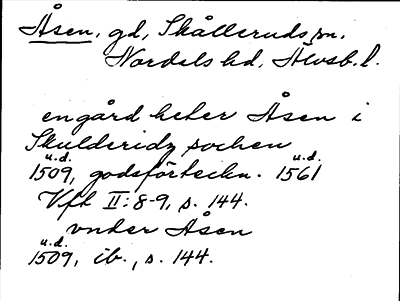 Åsen, gd, Skålleruds sn.
Nordals hd, Älvsb. l.
en gård heter Åsen i
Skulderidz sochen
u.d. u.d.
1509, godsförteckn. 1561
Vfl II:8-9, s. 144.
vnder Åsen
u.d.
1509, ib., s. 144.